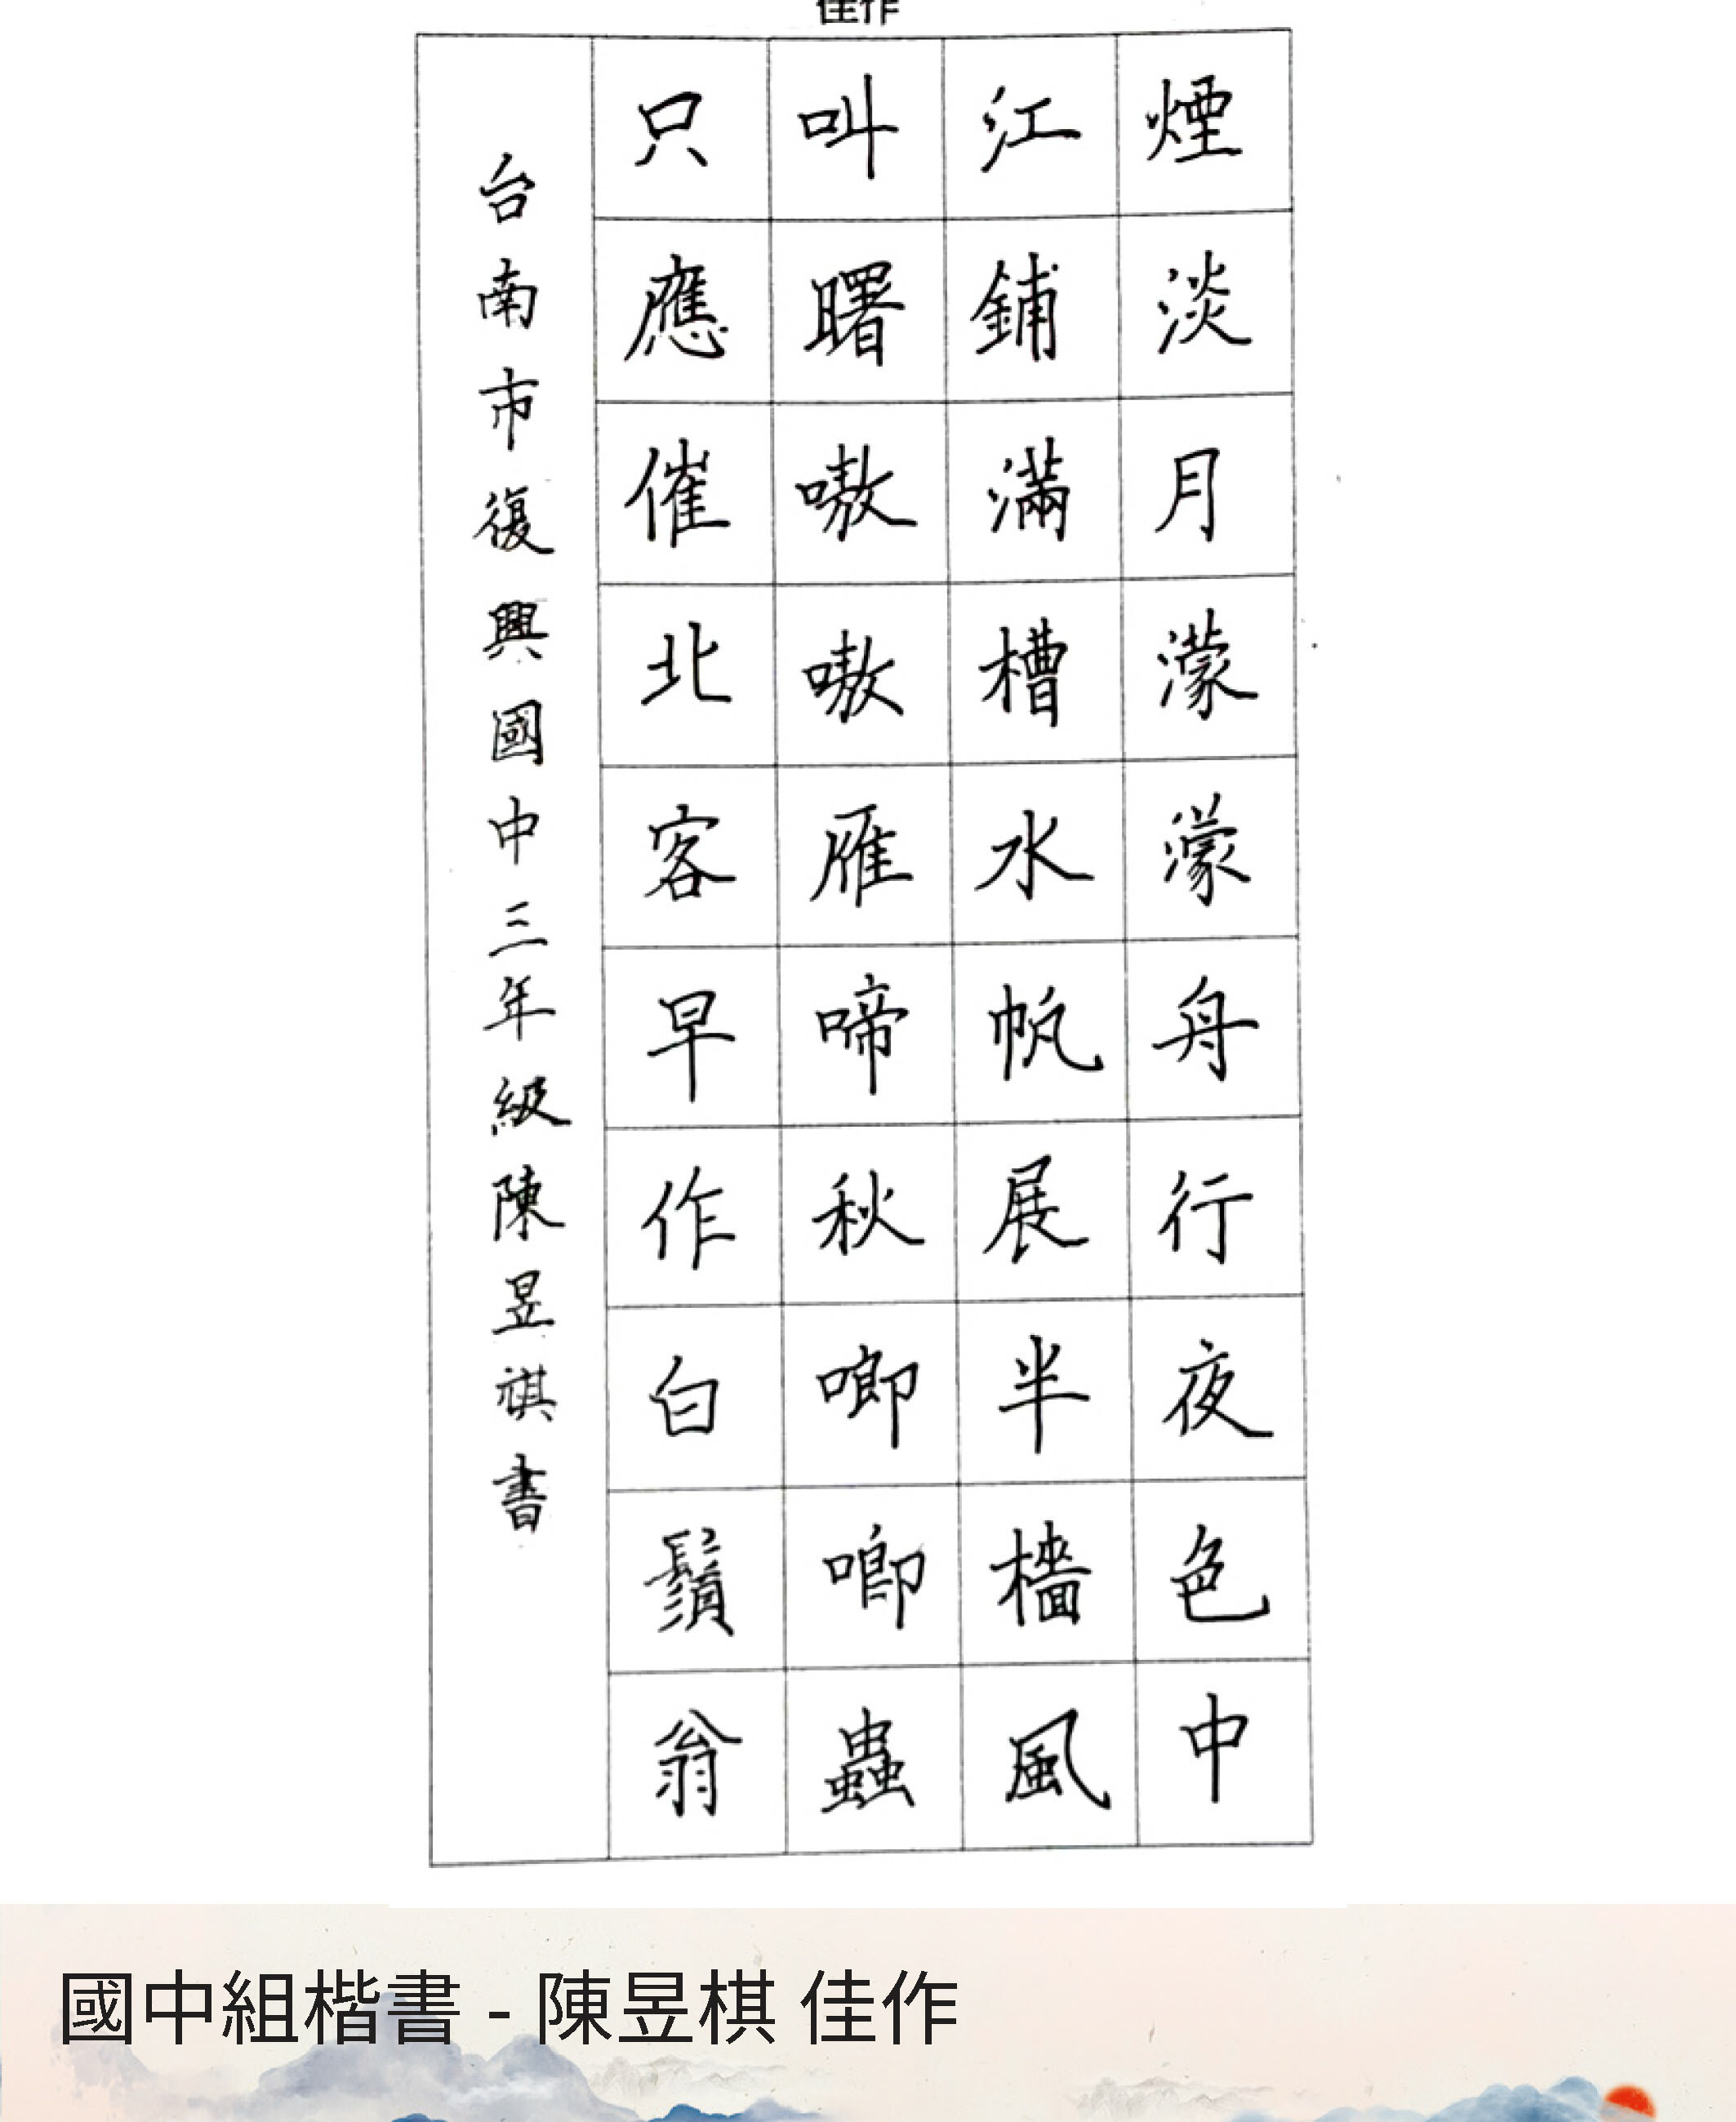 佳作
煙淡月濛濛舟行夜色中
江鋪滿槽水帆展半檣風
叫曙嗷嗷雁啼秋唧唧蟲
只應催北客早作白鬚翁
台南市復興國中三年級陳昱祺書
國中組楷書 - 陳昱棋 佳作